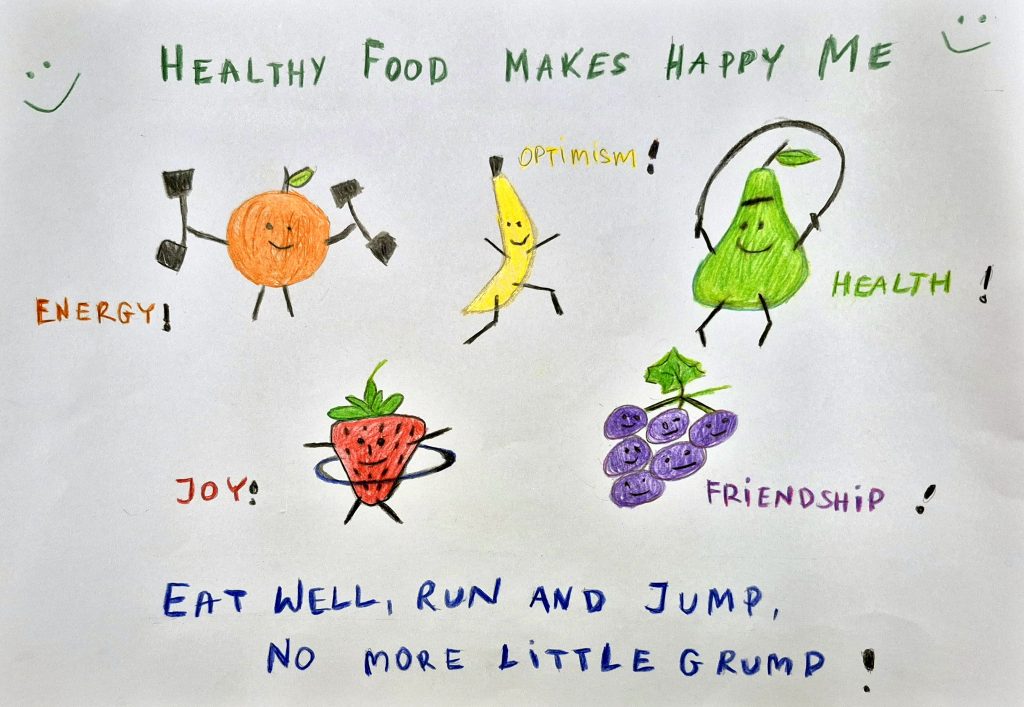 HEALTHY FOOD MAKES HAPPY ME
OPTiMiSM!
HEALTH !
ENERGY!
JOY!
FRiENDSHiP !
EAT WELL, RUN AND JUMP,
NO MORE LiTTLE GRUMP !